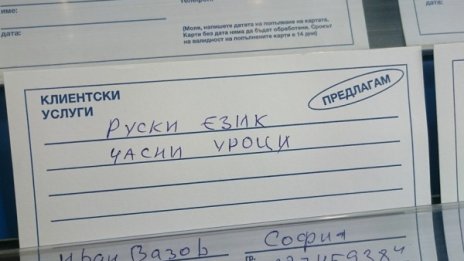 дата:
(Моля, напишете датата на попълване на картата.
Карти без дата няма да бъдат обработени. Срокът
на валидност на попълнените карти е 14 дни)
КЛИЕНТСКИ
УСЛУГИ
ПРЕДЛАГАМ
РУСКИ ЕЗИК
ЧАСНИ УРОЦИ
Иван Вазов
София